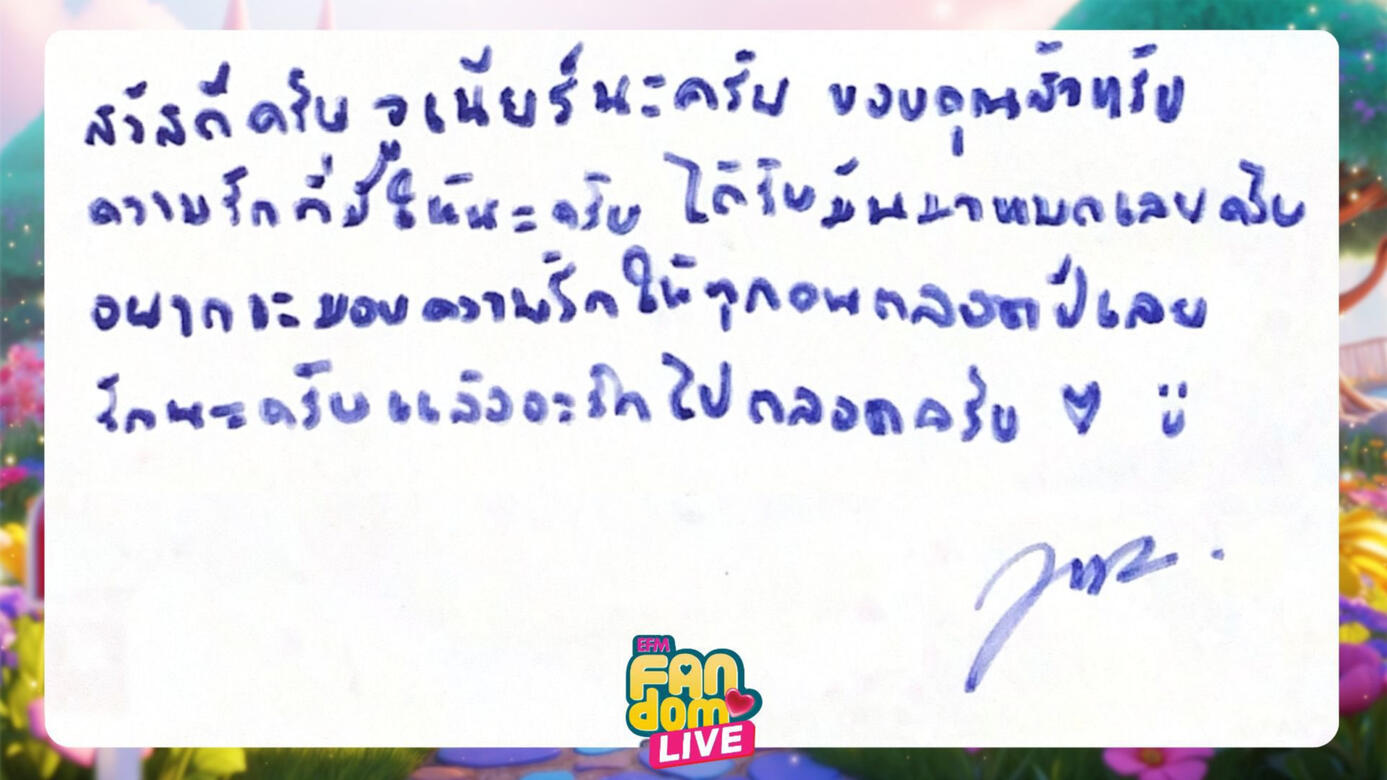 สวัสดีครับ จูเนียร์นะครับ ขอบคุณสำหรับ
ความรักที่มีให้กันนะครับ ได้รับมันมาหมดเลยครับ
อยากจะมอบความรักให้ทุกคนตลอดปีเลย
รักนะครับและจะรักไปตลอดครับ ♥ ü
EFM
FANdom
LIVE